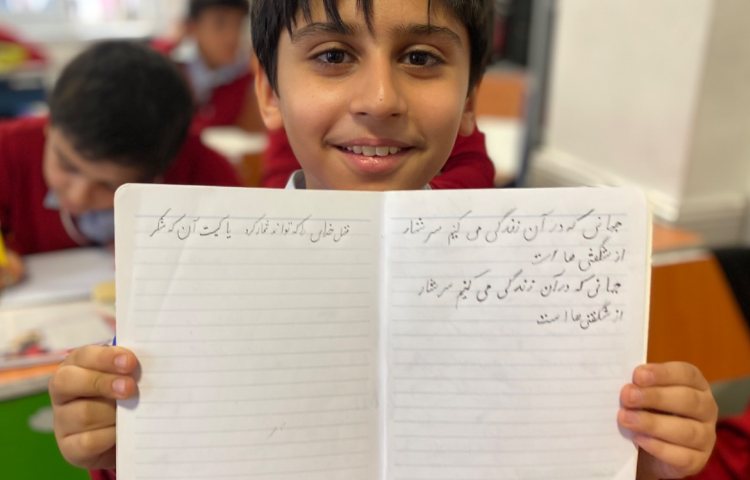 جهانی که در آن زندگی می کنیم سرشار
از شگفتی ها است
جهانی که در آن زندگی می کنیم سرشار
از شگفتی ها است
فضل خدای را که تواند شمار کرد یا کیست آن که شکر